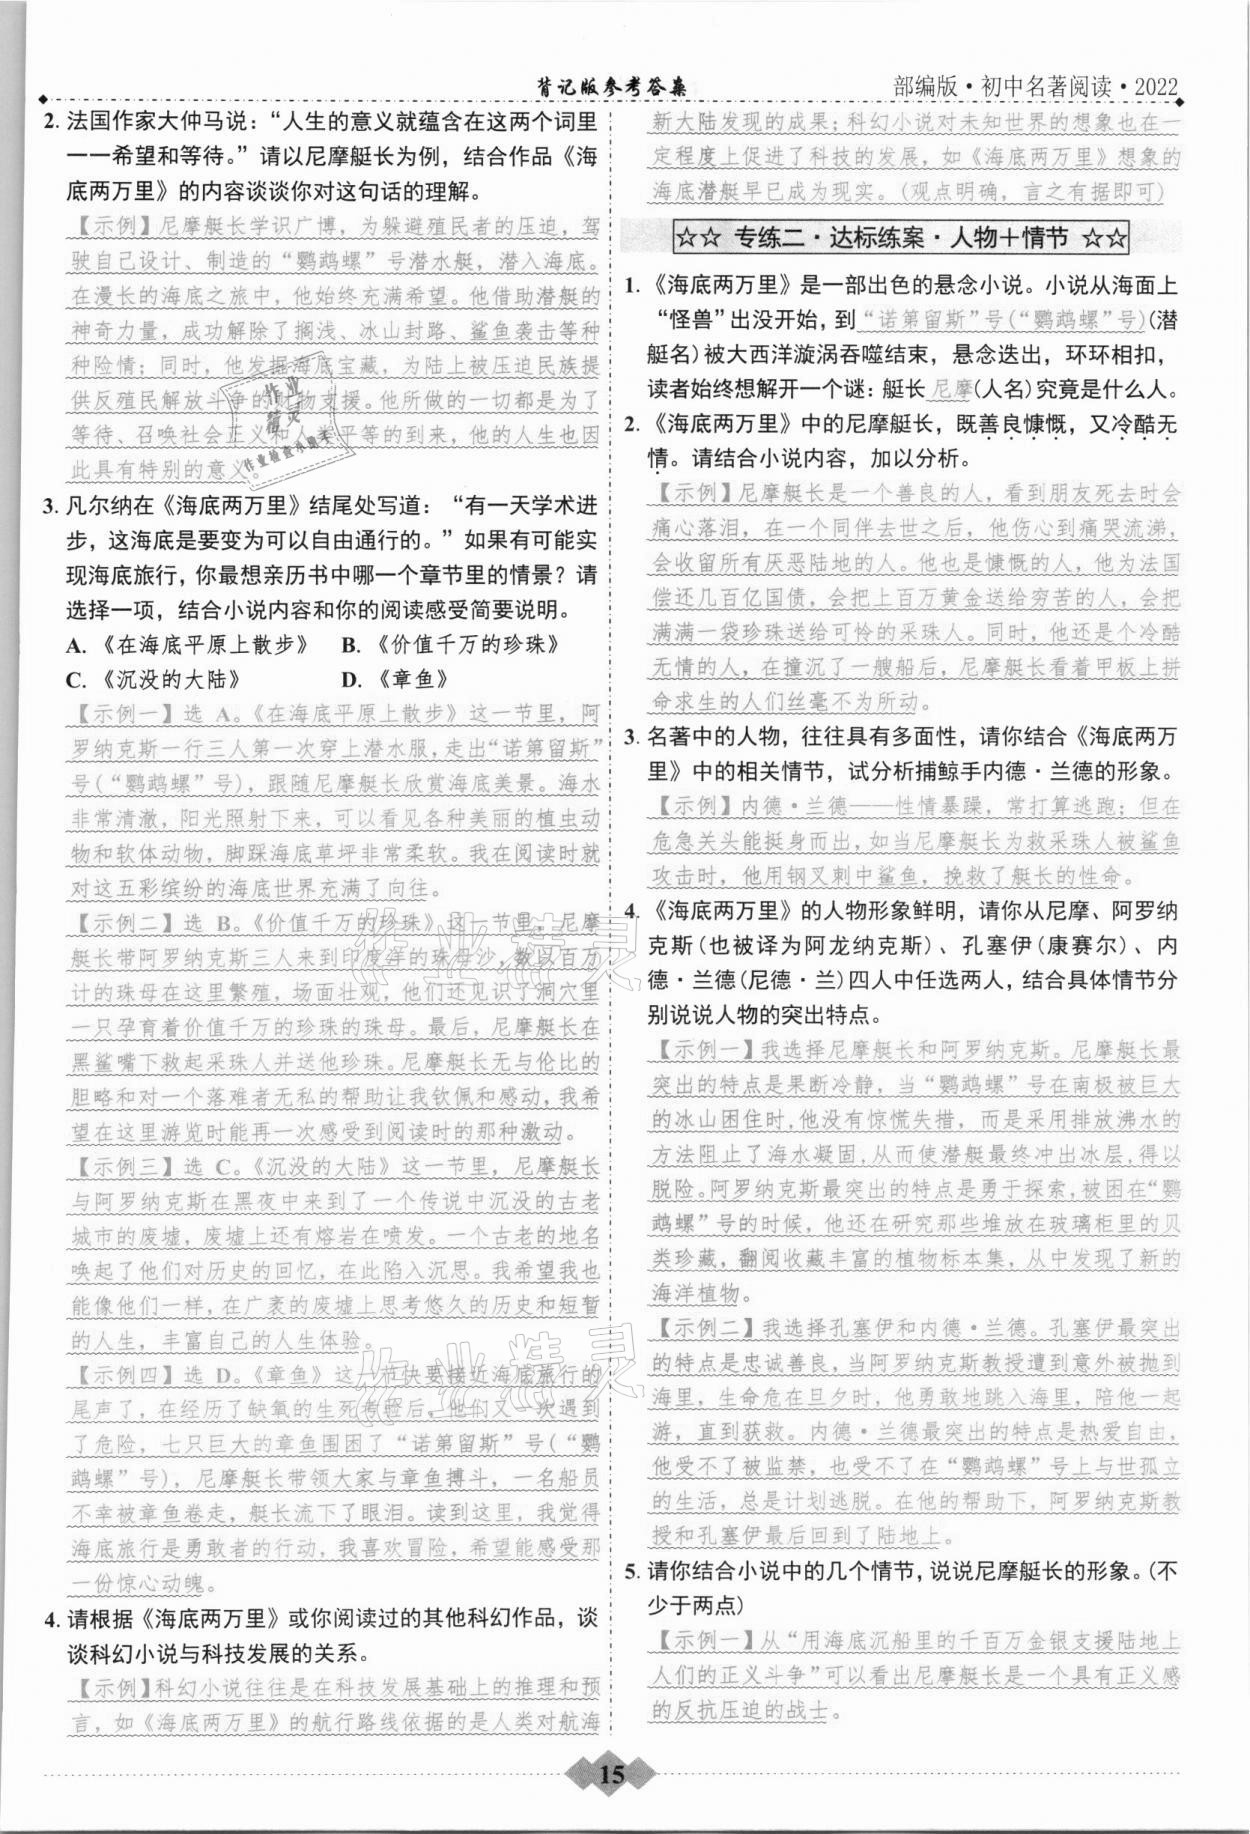 背记版参考答案
部编版·初中名著阅读·2022
2. 法国作家大仲马说：“人生的意义就蕴含在这两个词里
——希望和等待。”请以尼摩艇长为例，结合作品《海
底两万里》的内容谈谈你对这句话的理解。
【示例】尼摩艇长学识广博，为躲避殖民者的压迫，驾
驶自己设计、制造的“鹦鹉螺”号潜水艇，潜入海底。
在漫长的海底之旅中，他始终充满希望。他借助潜艇的
神奇力量，成功解除了搁浅、冰山封路、鲨鱼袭击等种
种险情；同时，他发掘海底宝藏，为陆上被压迫民族提
供反殖民解放斗争的财物支援。他所做的一切都是为了
等待、召唤社会正义和人类平等的到来，他的人生也因
此具有特别的意义。
3. 凡尔纳在《海底两万里》结尾处写道：“有一天学术进
步，这海底是要变为可以自由通行的。”如果有可能实
现海底旅行，你最想亲历书中哪一个章节里的情景？请
选择一项，结合小说内容和你的阅读感受简要说明。
A. 《在海底平原上散步》 B. 《价值千万的珍珠》
C. 《沉没的大陆》 D. 《章鱼》
【示例一】选 A。《在海底平原上散步》这一节里，阿
罗纳克斯一行三人第一次穿上潜水服，走出“诺第留斯”
号(“鹦鹉螺”号)，跟随尼摩艇长欣赏海底美景。海水
非常清澈，阳光照射下来，可以看见各种美丽的植虫动
物和软体动物，脚踩海底草坪非常柔软。我在阅读时就
对这五彩缤纷的海底世界充满了向往。
【示例二】选 B。《价值千万的珍珠》这一节里，尼摩
艇长带阿罗纳克斯三人来到印度洋的珠母沙，数以百万
计的珠母在这里繁殖，场面壮观，他们还见识了洞穴里
一只孕育着价值千万的珍珠的珠母。最后，尼摩艇长在
黑鲨嘴下救起采珠人并送他珍珠。尼摩艇长无与伦比的
胆略和对一个落难者无私的帮助让我钦佩和感动，我希
望在这里游览时能再一次感受到阅读时的那种激动。
【示例三】选 C。《沉没的大陆》这一节里，尼摩艇长
与阿罗纳克斯在黑夜中来到了一个传说中沉没的古老
城市的废墟，废墟上还有熔岩在喷发。一个古老的地名
唤起了他们对历史的回忆，在此陷入沉思。我希望我也
能像他们一样，在广袤的废墟上思考悠久的历史和短暂
的人生，丰富自己的人生体验。
【示例四】选 D。《章鱼》这一节快要接近海底旅行的
尾声了，在经历了缺氧的生死考验后，他们又一次遇到
了危险，七只巨大的章鱼围困了“诺第留斯”号(“鹦
鹉螺”号)，尼摩艇长带领大家与章鱼搏斗，一名船员
不幸被章鱼卷走，艇长流下了眼泪。读到这里，我觉得
海底旅行是勇敢者的行动，我喜欢冒险，希望能感受那
一份惊心动魄。
4. 请根据《海底两万里》或你阅读过的其他科幻作品，谈
谈科幻小说与科技发展的关系。
【示例】科幻小说往往是在科技发展基础上的推理和预
言，如《海底两万里》的航行路线依据的是人类对航海
新大陆发现的成果；科幻小说对未知世界的想象也在一
定程度上促进了科技的发展，如《海底两万里》想象的
海底潜艇早已成为现实。(观点明确，言之有据即可)
☆☆ 专练二·达标练案·人物＋情节 ☆☆
1. 《海底两万里》是一部出色的悬念小说。小说从海面上
“怪兽”出没开始，到“诺第留斯”号(“鹦鹉螺”号)(潜
艇名)被大西洋漩涡吞噬结束，悬念迭出，环环相扣，
读者始终想解开一个谜：艇长 尼摩(人名)究竟是什么人。
2. 《海底两万里》中的尼摩艇长，既善良慷慨，又冷酷无
情。请结合小说内容，加以分析。
【示例】尼摩艇长是一个善良的人，看到朋友死去时会
痛心落泪，在一个同伴去世之后，他伤心到痛哭流涕，
会收留所有厌恶陆地的人。他也是慷慨的人，他为法国
偿还几百亿国债，会把上百万黄金送给穷苦的人，会把
满满一袋珍珠送给可怜的采珠人。同时，他还是个冷酷
无情的人，在撞沉了一艘船后，尼摩艇长看着甲板上拼
命求生的人们丝毫不为所动。
3. 名著中的人物，往往具有多面性，请你结合《海底两万
里》中的相关情节，试分析捕鲸手内德·兰德的形象。
【示例】内德·兰德——性情暴躁，常打算逃跑；但在
危急关头能挺身而出，如当尼摩艇长为救采珠人被鲨鱼
攻击时，他用钢叉刺中鲨鱼，挽救了艇长的性命。
4. 《海底两万里》的人物形象鲜明，请你从尼摩、阿罗纳
克斯(也被译为阿龙纳克斯)、孔塞伊(康赛尔)、内
德·兰德(尼德·兰)四人中任选两人，结合具体情节分
别说说人物的突出特点。
【示例一】我选择尼摩艇长和阿罗纳克斯。尼摩艇长最
突出的特点是果断冷静，当“鹦鹉螺”号在南极被巨大
的冰山困住时，他没有惊慌失措，而是采用排放沸水的
方法阻止了海水凝固，从而使潜艇最终冲出冰层，得以
脱险。阿罗纳克斯最突出的特点是勇于探索，被困在“鹦
鹉螺”号的时候，他还在研究那些堆放在玻璃柜里的贝
类珍藏，翻阅收藏丰富的植物标本集，从中发现了新的
海洋植物。
【示例二】我选择孔塞伊和内德·兰德。孔塞伊最突出
的特点是忠诚善良，当阿罗纳克斯教授遭到意外被抛到
海里，生命危在旦夕时，他勇敢地跳入海里，陪他一起
游，直到获救。内德·兰德最突出的特点是热爱自由，
他受不了被监禁，也受不了在“鹦鹉螺”号上与世孤立
的生活，总是计划逃脱。在他的帮助下，阿罗纳克斯教
授和孔塞伊最后回到了陆地上。
5. 请你结合小说中的几个情节，说说尼摩艇长的形象。(不
少于两点)
【示例一】从“用海底沉船里的千百万金银支援陆地上
人们的正义斗争”可以看出尼摩艇长是一个具有正义感
的反抗压迫的战士。
15
作业精灵
作业精灵
作业
精灵
作业检查小助手